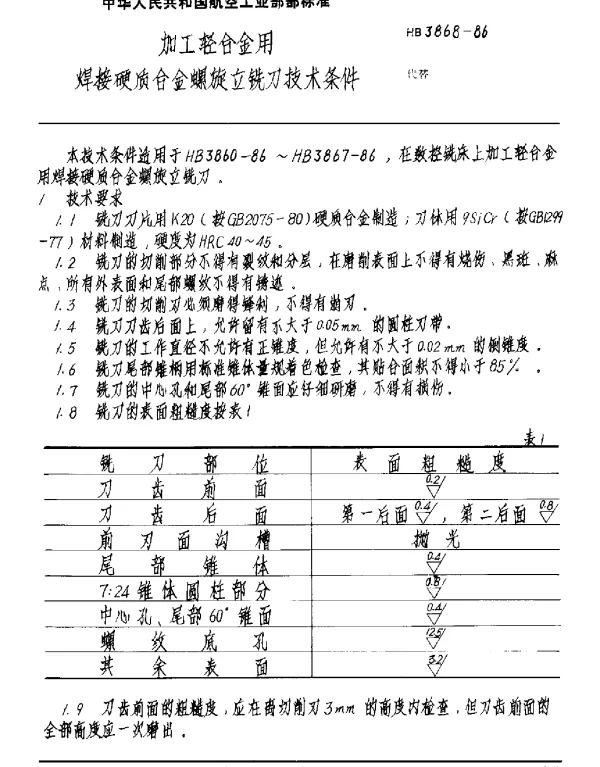 中华人民共和国航空工业部部标准
加工轻合金用
焊接硬质合金螺旋立铣刀技术条件
HB 3868-86
代替
本技术条件适用于HB3860-86 ~HB3867-86 ，在数控铣床上加工轻合金
用焊接硬质合金螺旋立铣刀 。
1 技术要求
1.1 铣刀刀片用K20（按GB2075-80)硬质合金制造；刀体用9SiCr（按GB1299
-77）材料制造，硬度为HRC 40~45 。
1.2 铣刀的切削部分不得有裂纹和分层，在磨削表面上不得有烧伤、黑斑、麻
点，所有外表面和尾部螺纹不得有锈迹 。
1.3 铣刀的切削刃必须磨得锋利，不得有崩刃 。
1.4 铣刀刀齿后面上，允许留有不大于0.05mm 的圆柱刃带 。
1.5 铣刀的工作直径不允许有正锥度，但允许有不大于0.02 mm 的倒锥度 。
1.6 铣刀尾部锥柄用标准锥体量规着色检查，其贴合面积不得小于85% 。
1.7 铣刀的中心孔和尾部60°锥面应仔细研磨，不得有损伤。
1.8 铣刀的表面粗糙度按表1
表1
铣刀部位 表面粗糙度
刀齿前面 0.2
刀齿后面 第一后面 0.4 ，第二后面 0.8
前刃面沟槽 抛光
尾部锥体 0.4
7:24锥体圆柱部分 0.8
中心孔、尾部60°锥面 0.4
螺纹底孔 12.5
其余表面 3.2
1.9 刀齿前面的粗糙度，应在离切削刃3mm 的高度内检查，但刀齿前面的
全部高度应一次磨出 。